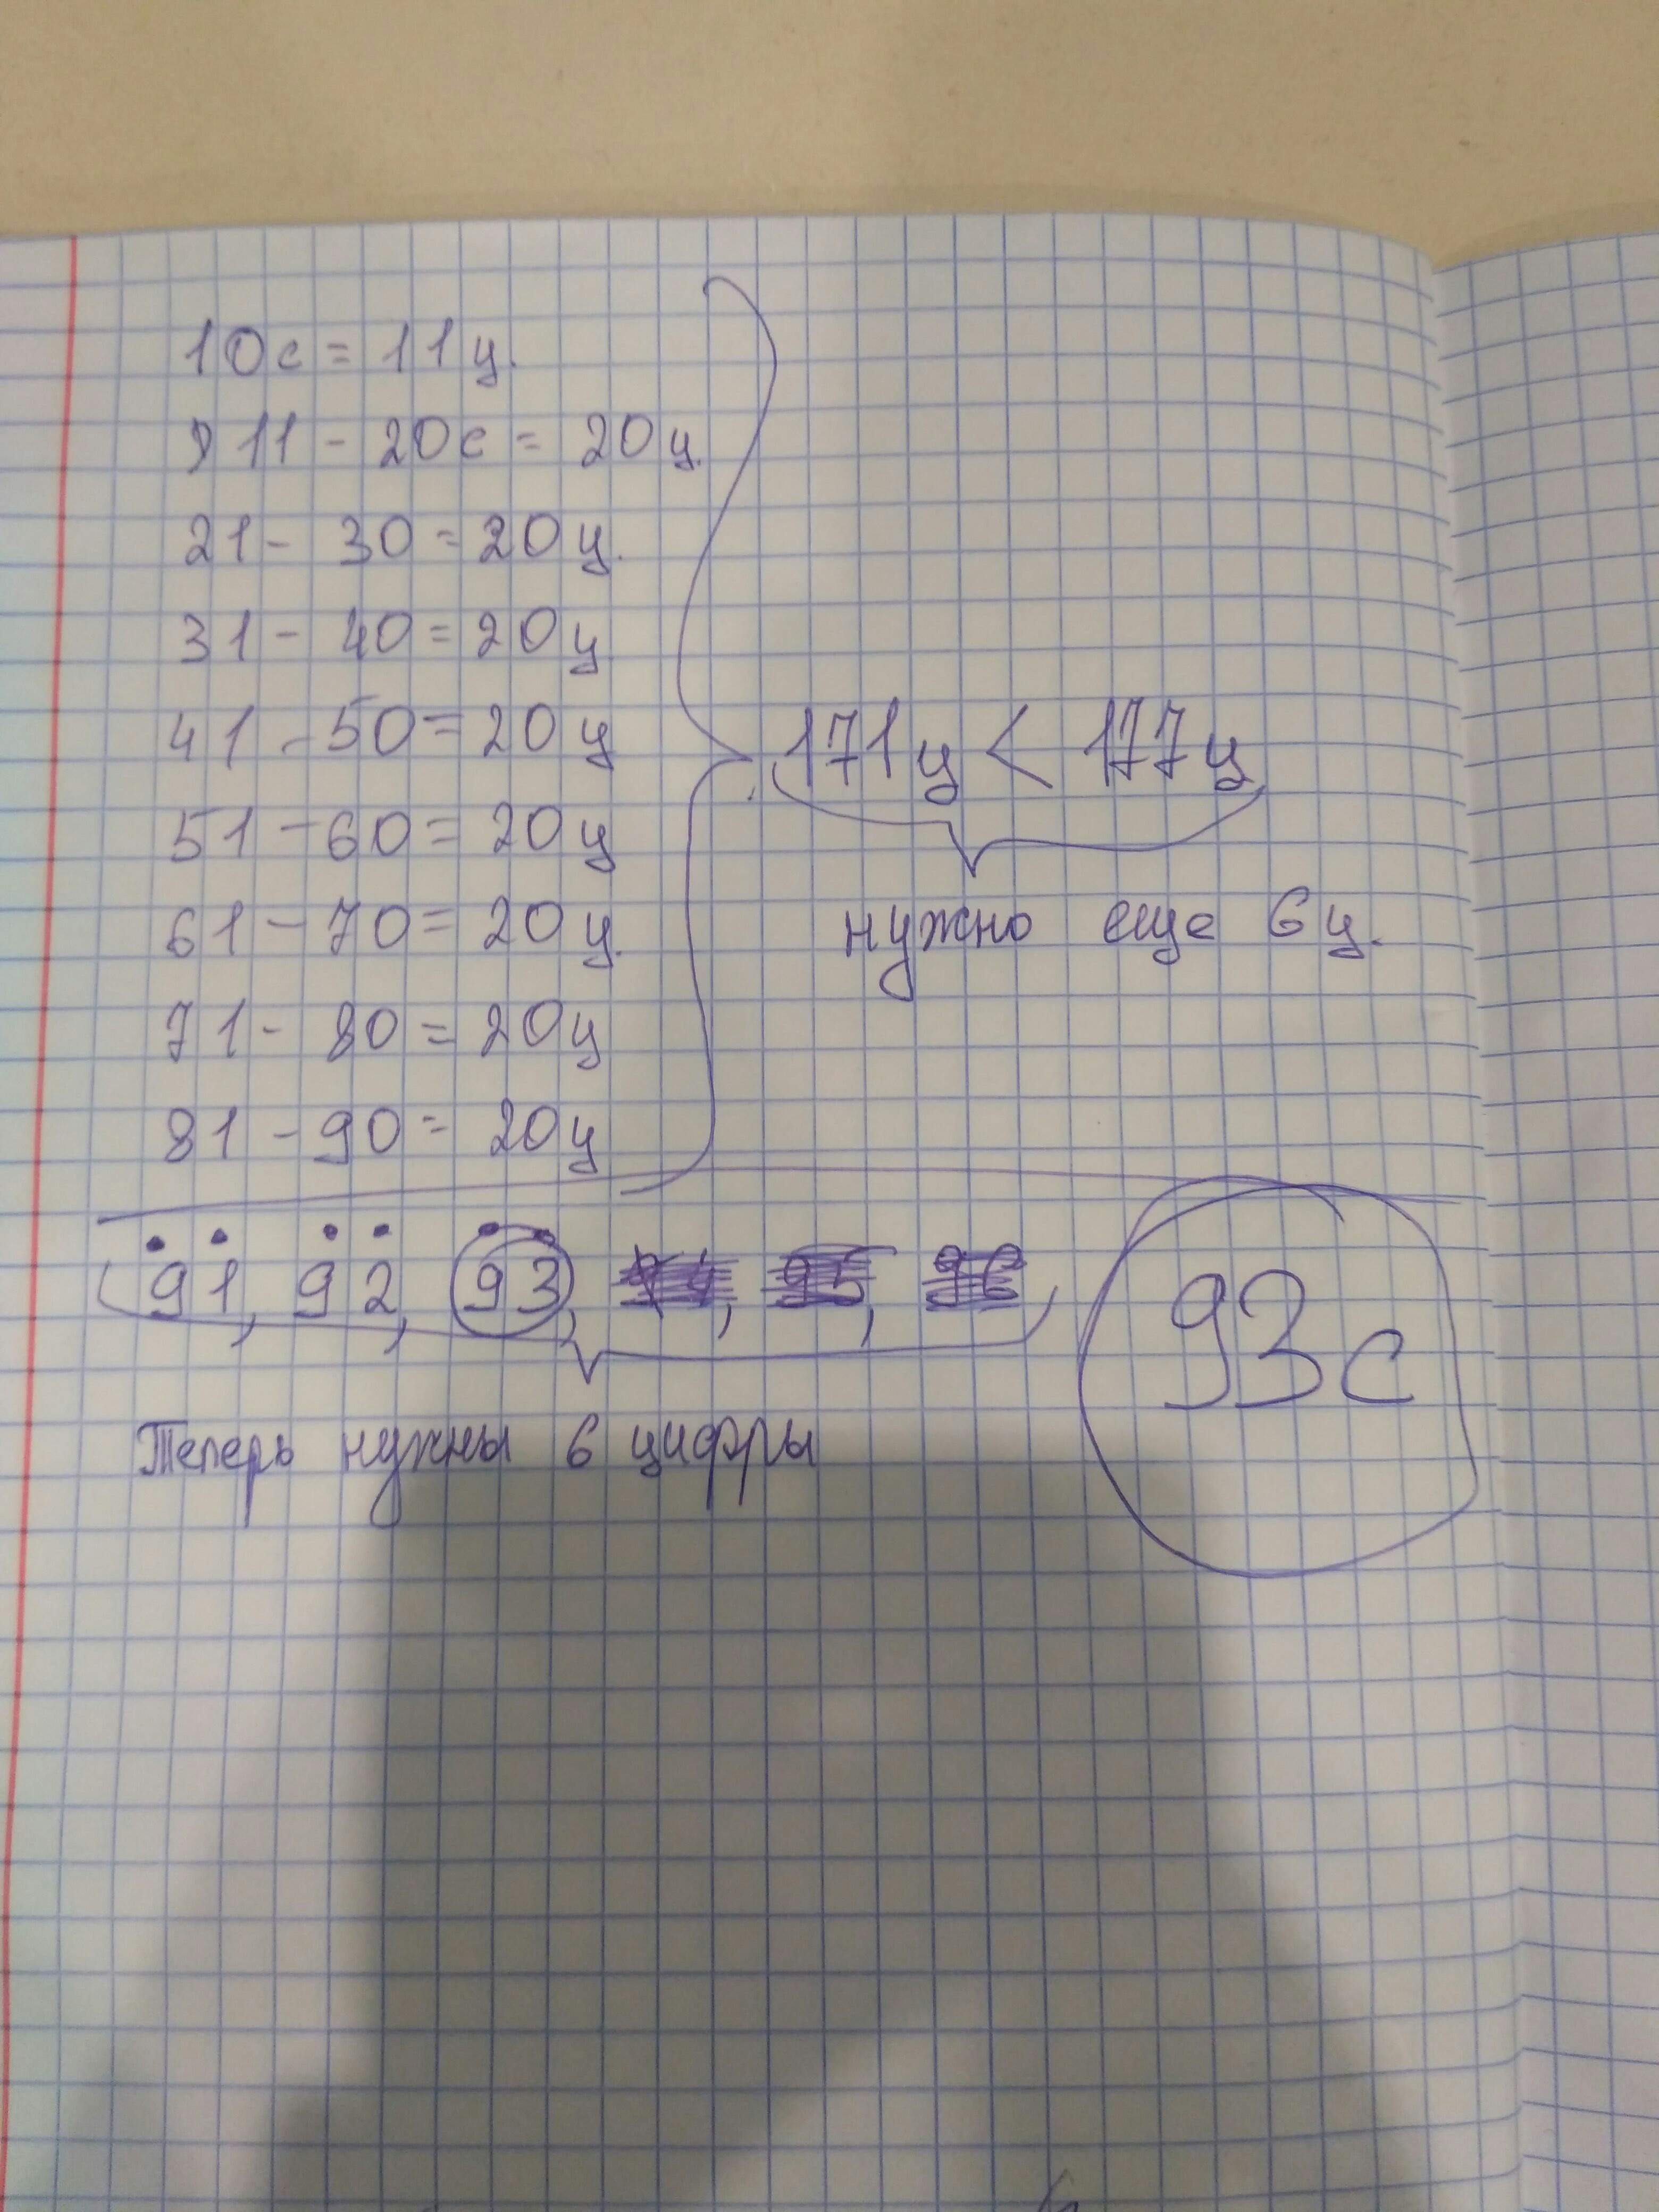 10с = 11ц.
11 - 20с = 20ц.
21 - 30 = 20ц.
31 - 40 = 20ц
41 - 50 = 20ц
51 - 60 = 20ц
61 - 70 = 20ц.
71 - 80 = 20ц
81 - 90 = 20ц
171ц < 177ц
нужно еще 6ц.
91, 92, 93, 94, 95, 96,
93с
Теперь нужны 6 цифры